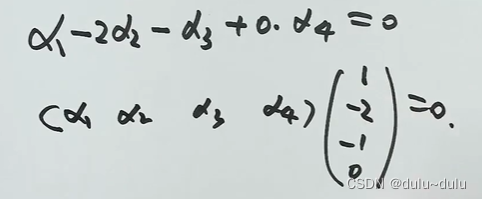 α₁-2α₂-α₃+0·α₄=0
(α₁ α₂ α₃ α₄)(1
-2
-1
0)=0.
CSDN @dulu~dulu